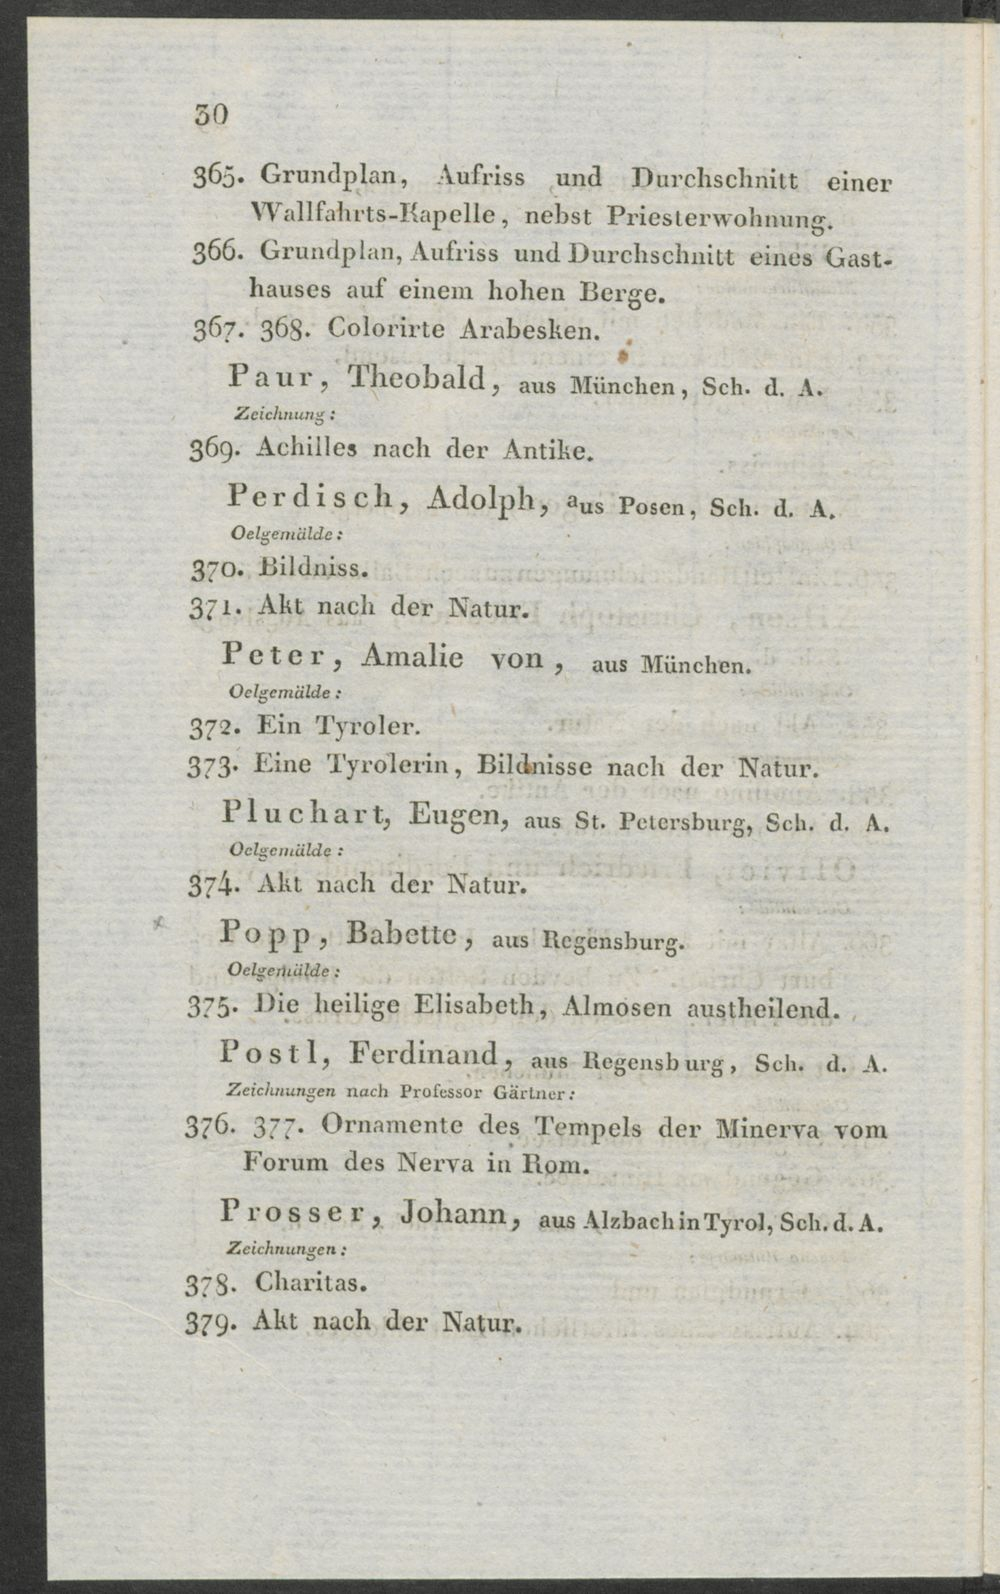 30
365. Grundplan, Aufriss und Durchschnitt einer
Wallfahrts-Kapelle, nebst Priesterwohnung.
366. Grundplan, Aufriss und Durchschnitt eines Gast-
hauses auf einem hohen Berge.
367. 368. Colorirte Arabesken.
Paur, Theobald, aus München, Sch. d. A.
Zeichnung:
369. Achilles nach der Antike.
Perdisch, Adolph, aus Posen, Sch. d. A.
Oelgemälde:
370. Bildniss.
371. Akt nach der Natur.
Peter, Amalie von, aus München.
Oelgemälde:
372. Ein Tyroler.
373. Eine Tyrolerin, Bildnisse nach der Natur.
Pluchart, Eugen, aus St. Petersburg, Sch. d. A.
Oelgemälde:
374. Akt nach der Natur.
Popp, Babette, aus Regensburg.
Oelgemälde:
375. Die heilige Elisabeth, Almosen austheilend.
Postl, Ferdinand, aus Regensburg, Sch. d. A.
Zeichnungen nach Professor Gärtner:
376. 377. Ornamente des Tempels der Minerva vom
Forum des Nerva in Rom.
Prosser, Johann, aus Alzbach in Tyrol, Sch. d. A.
Zeichnungen:
378. Charitas.
379. Akt nach der Natur.